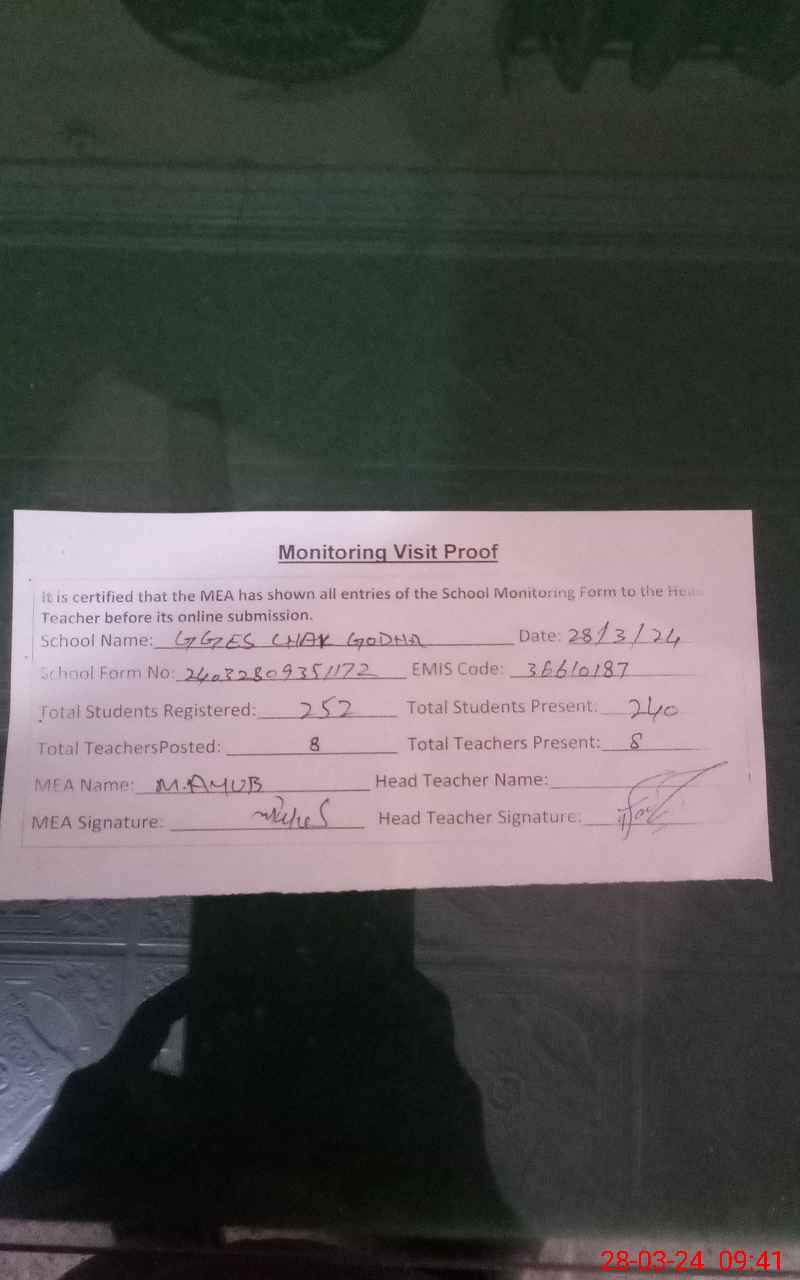 Monitoring Visit Proof
It is certified that the MEA has shown all entries of the School Monitoring Form to the Head
Teacher before its online submission.
School Name: GGES CHAK GODHA Date: 28/3/24
School Form No: 24032809351172 EMIS Code: 36610187
Total Students Registered: 252 Total Students Present: 240
Total TeachersPosted: 8 Total Teachers Present: 8
MEA Name: M.AYUB Head Teacher Name:
MEA Signature: Head Teacher Signature:
28-03-24 09:41